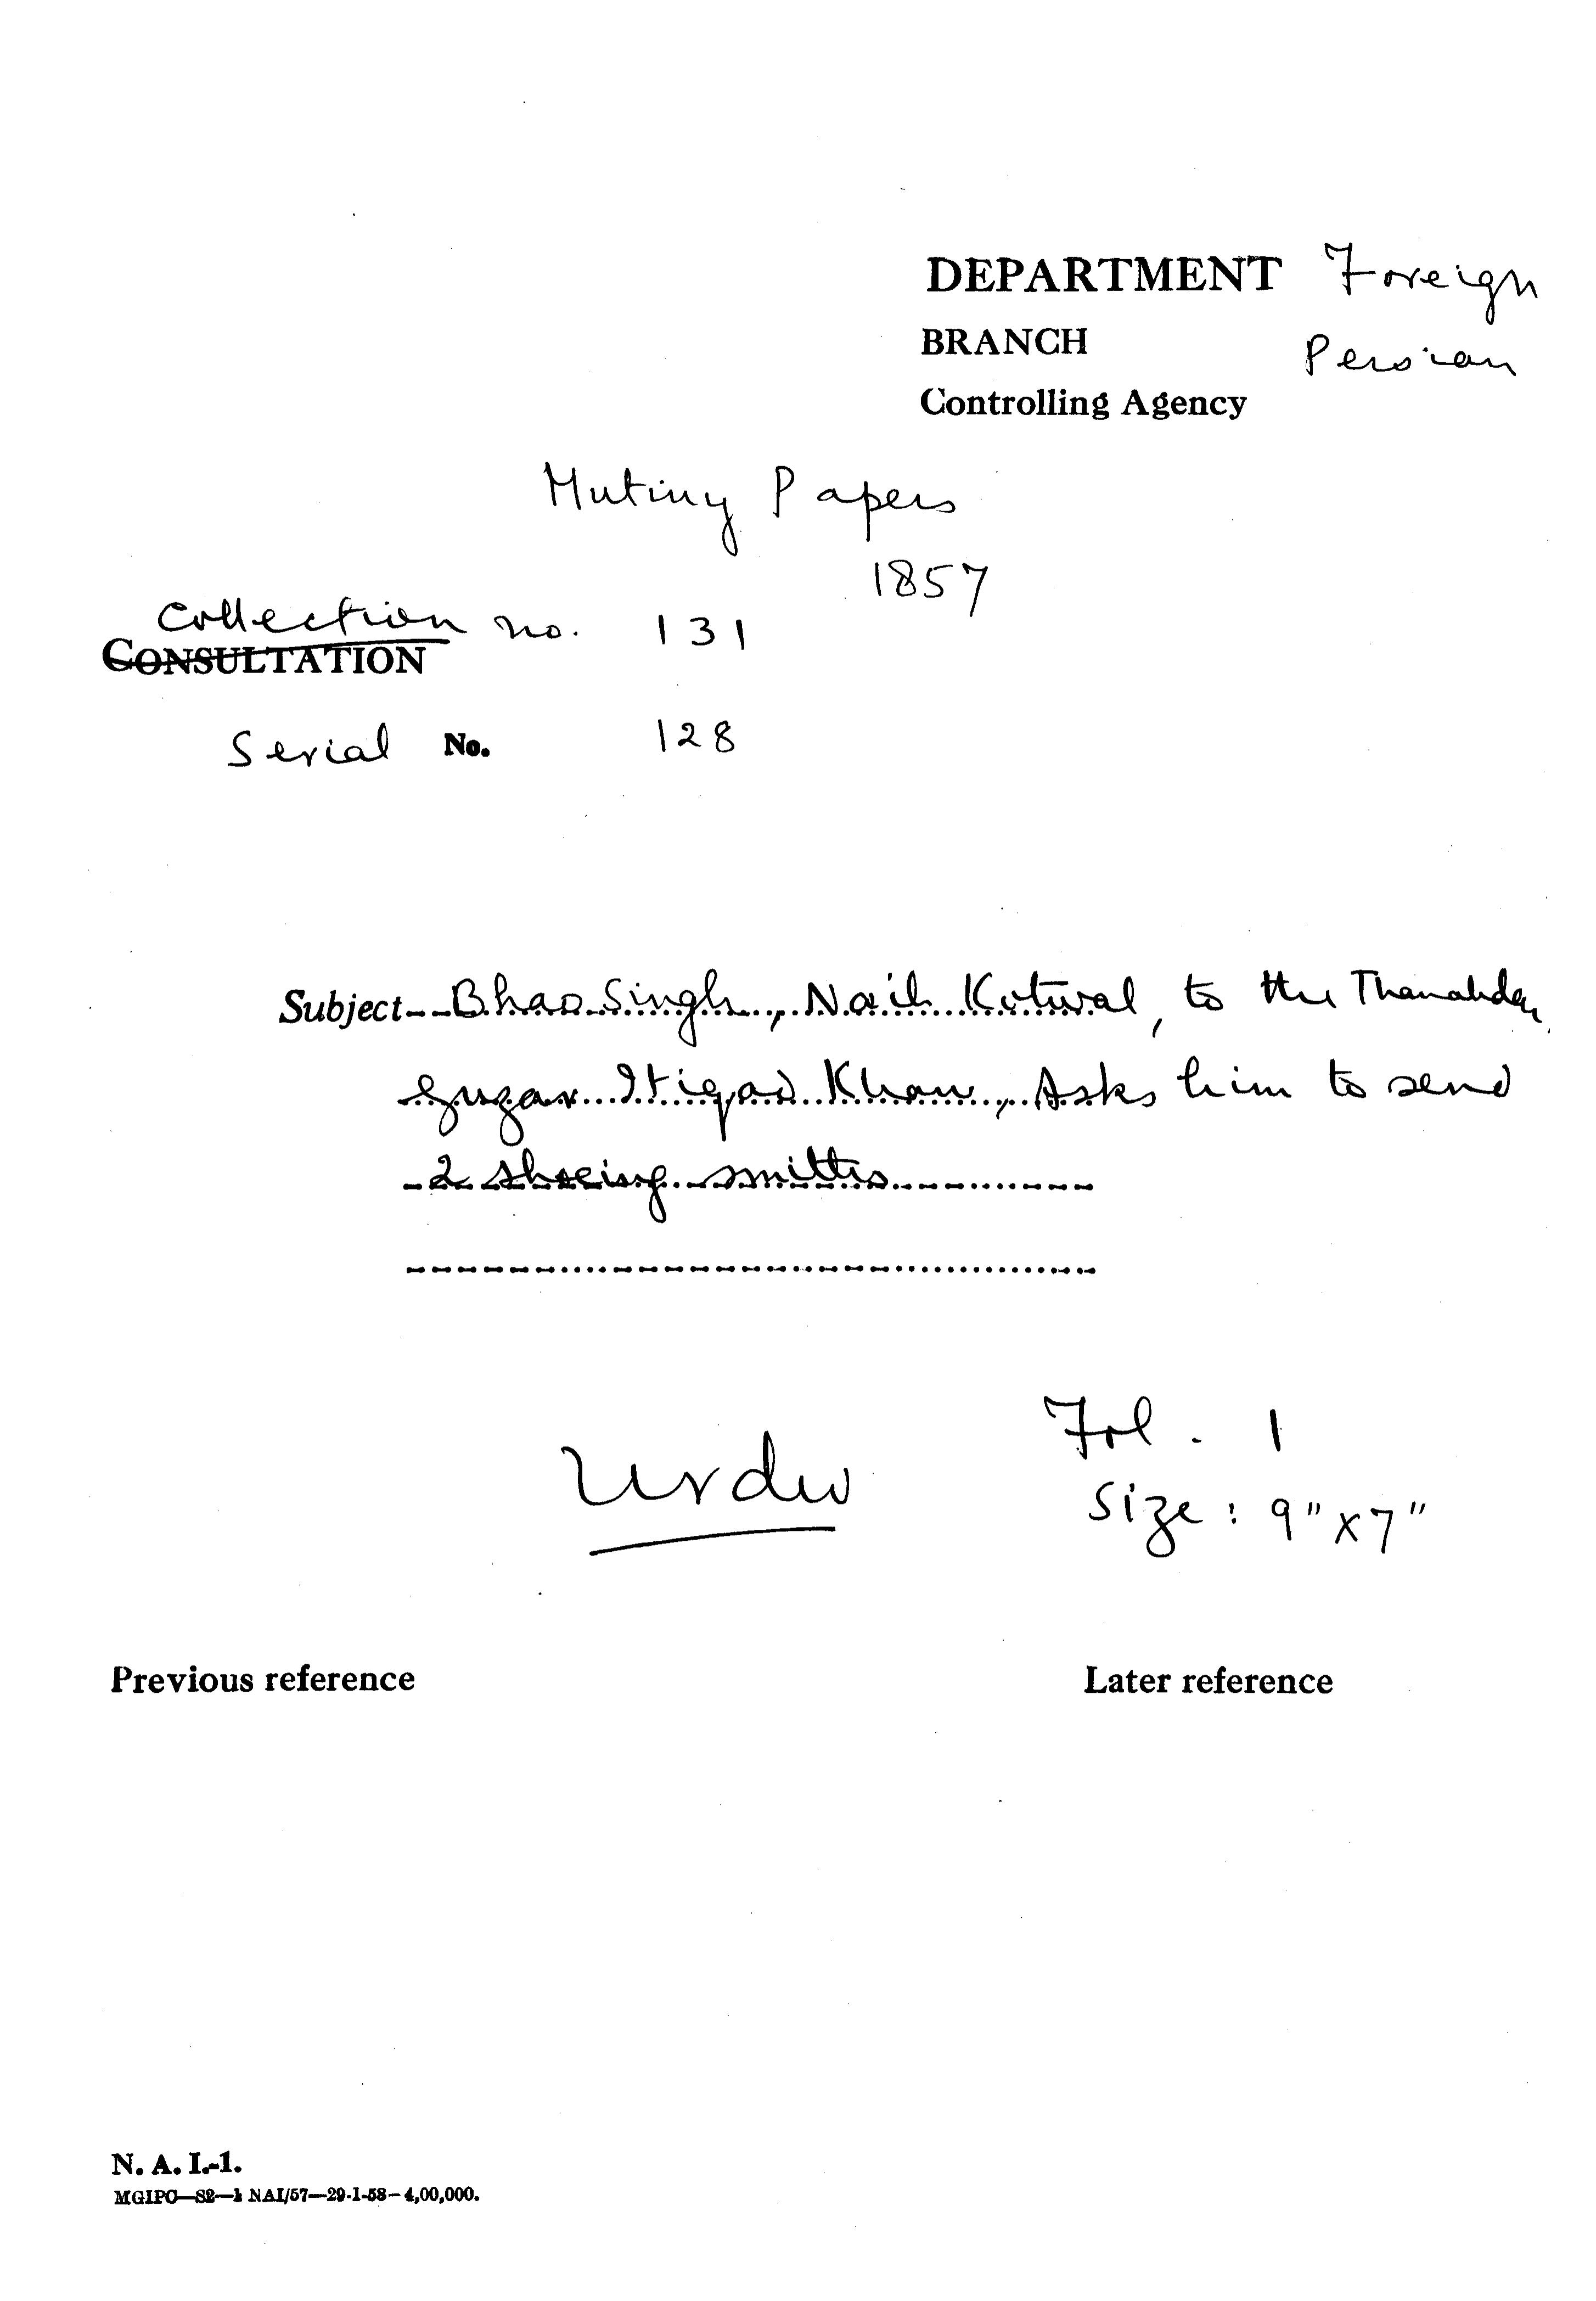 DEPARTMENT Foreign
BRANCH Persian
Controlling Agency
Mutiny Papers
1857
Collection no. 131
CONSULTATION
Serial No. 128
Subject Bhao Singh, Naib Kotwal, to the Thanahdar,
Guzar Itiqad Khan, Asks him to send
2 shoeing smiths
Urdu
Fol. 1
Size: 9" x 7"
Previous reference
Later reference
N. A. I.-1.
MGIPC—S2—1 NAI/57—29-1-58—4,00,000.